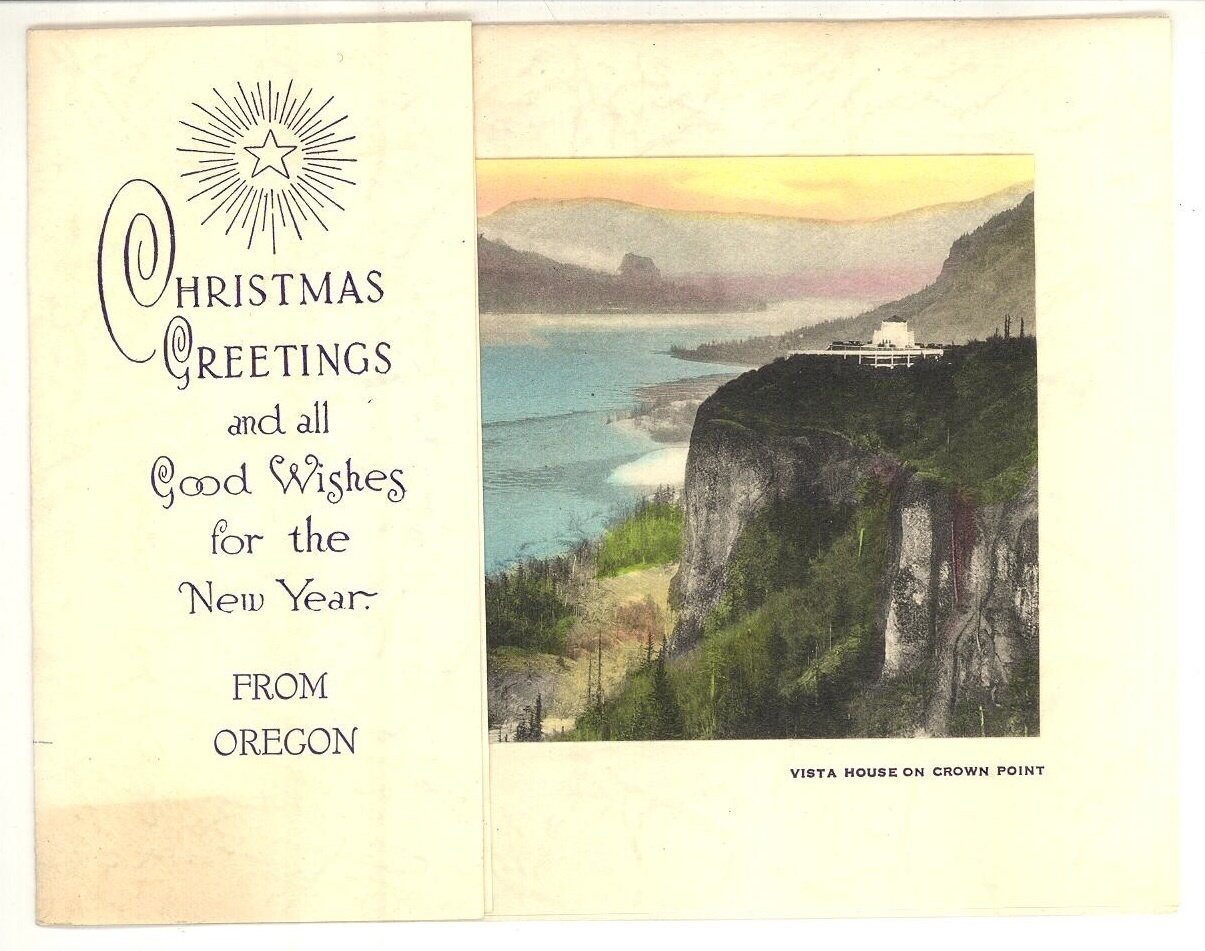 CHRISTMAS
GREETINGS
and all
Good Wishes
for the
New Year.
FROM
OREGON
VISTA HOUSE ON CROWN POINT